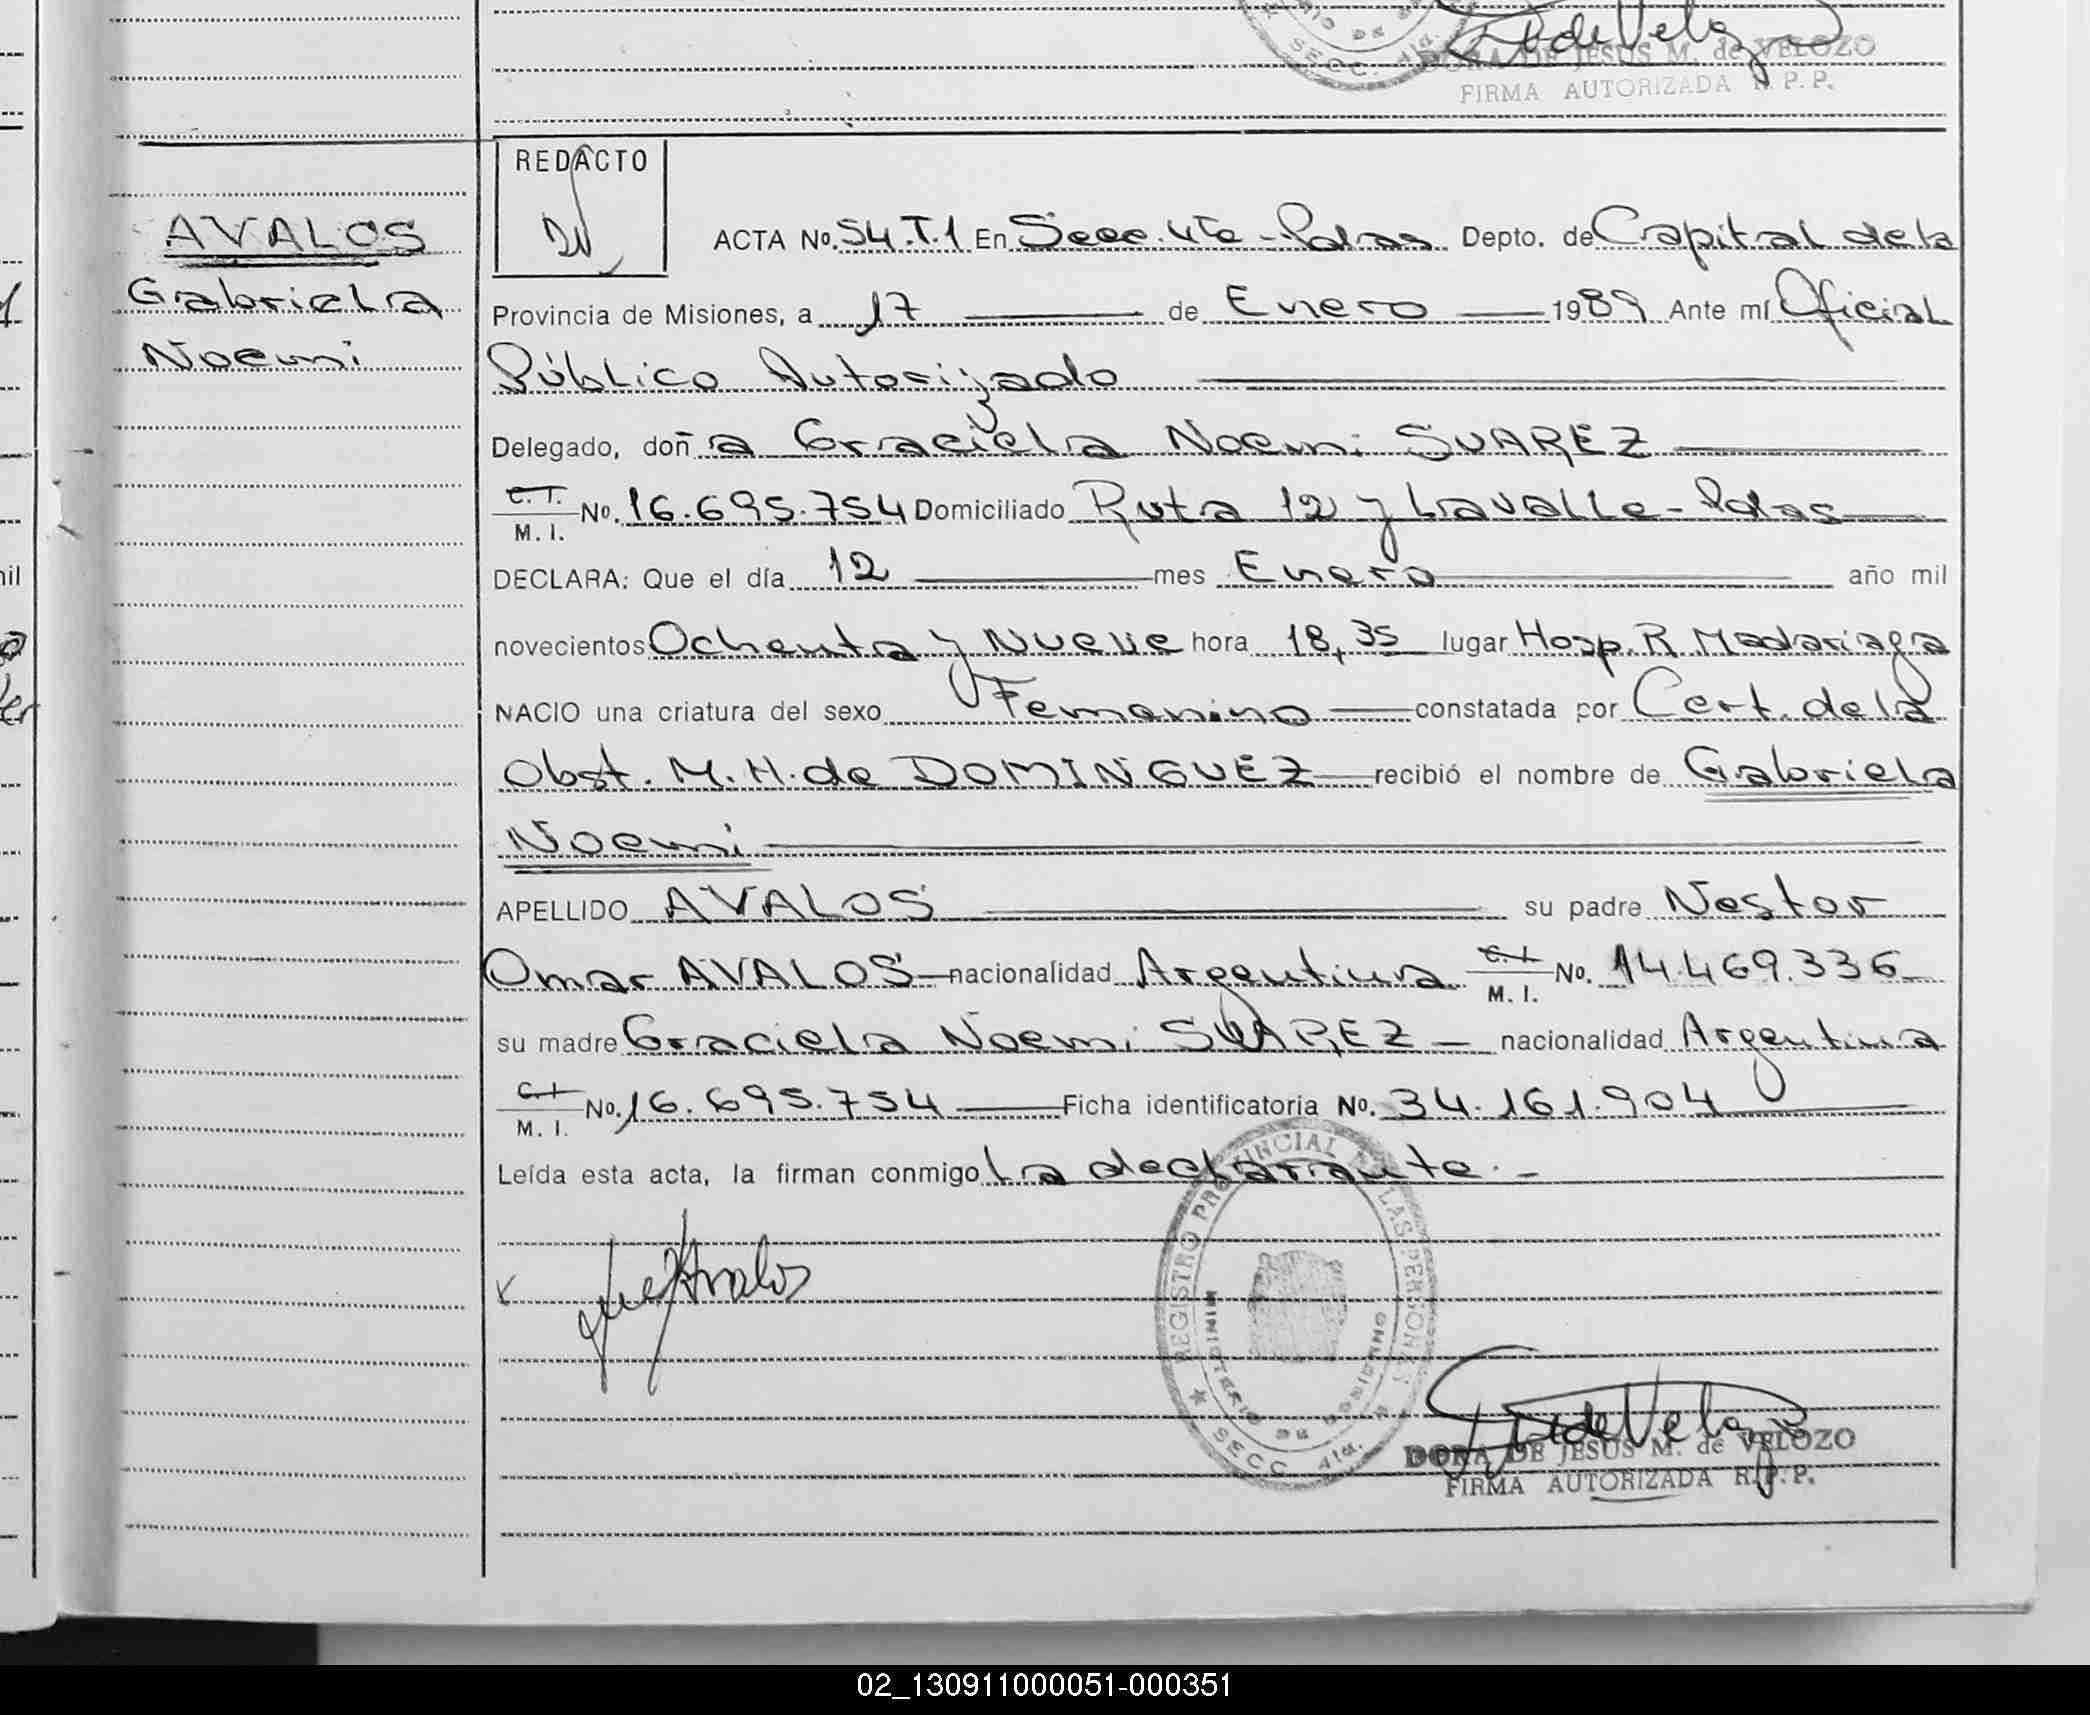 DORA DE JESUS M. de VELOZO
FIRMA AUTORIZADA R.P.P.
REDACTO
AVALOS
Gabriela
Noemi
ACTA No. 54.T.1 En Secc. 4ta - Pdas Depto. de Capital de la
Provincia de Misiones, a 17 de Enero 1989 Ante mí Oficial
Público Autorizado
Delegado, doñ a Graciela Noemi SUAREZ
C. I.
M. I. No. 16.695.754 Domiciliado Ruta 12 y Lavalle - Pdas
DECLARA: Que el día 12 mes Enero año mil
novecientos Ochenta y Nueve hora 18,35 lugar Hosp. R. Madariaga
NACIO una criatura del sexo Femenino constatada por Cert. de la
Obst. M. H. de DOMINGUEZ recibió el nombre de Gabriela
Noemi
APELLIDO AVALOS su padre Nestor
Omar AVALOS nacionalidad Argentina C. I. M. I. No. 14.469.336
su madre Graciela Noemi SUAREZ nacionalidad Argentina
C. I. M. I. No. 16.695.754 Ficha identificatoria No. 34.161.904
Leída esta acta, la firman conmigo la declarante.-
REGISTRO PROVINCIAL DE LAS PERSONAS
MINISTERIO DE GOBIERNO
SECC. 4ta.
DORA DE JESUS M. de VELOZO
FIRMA AUTORIZADA R.P.P.
02_130911000051-000351